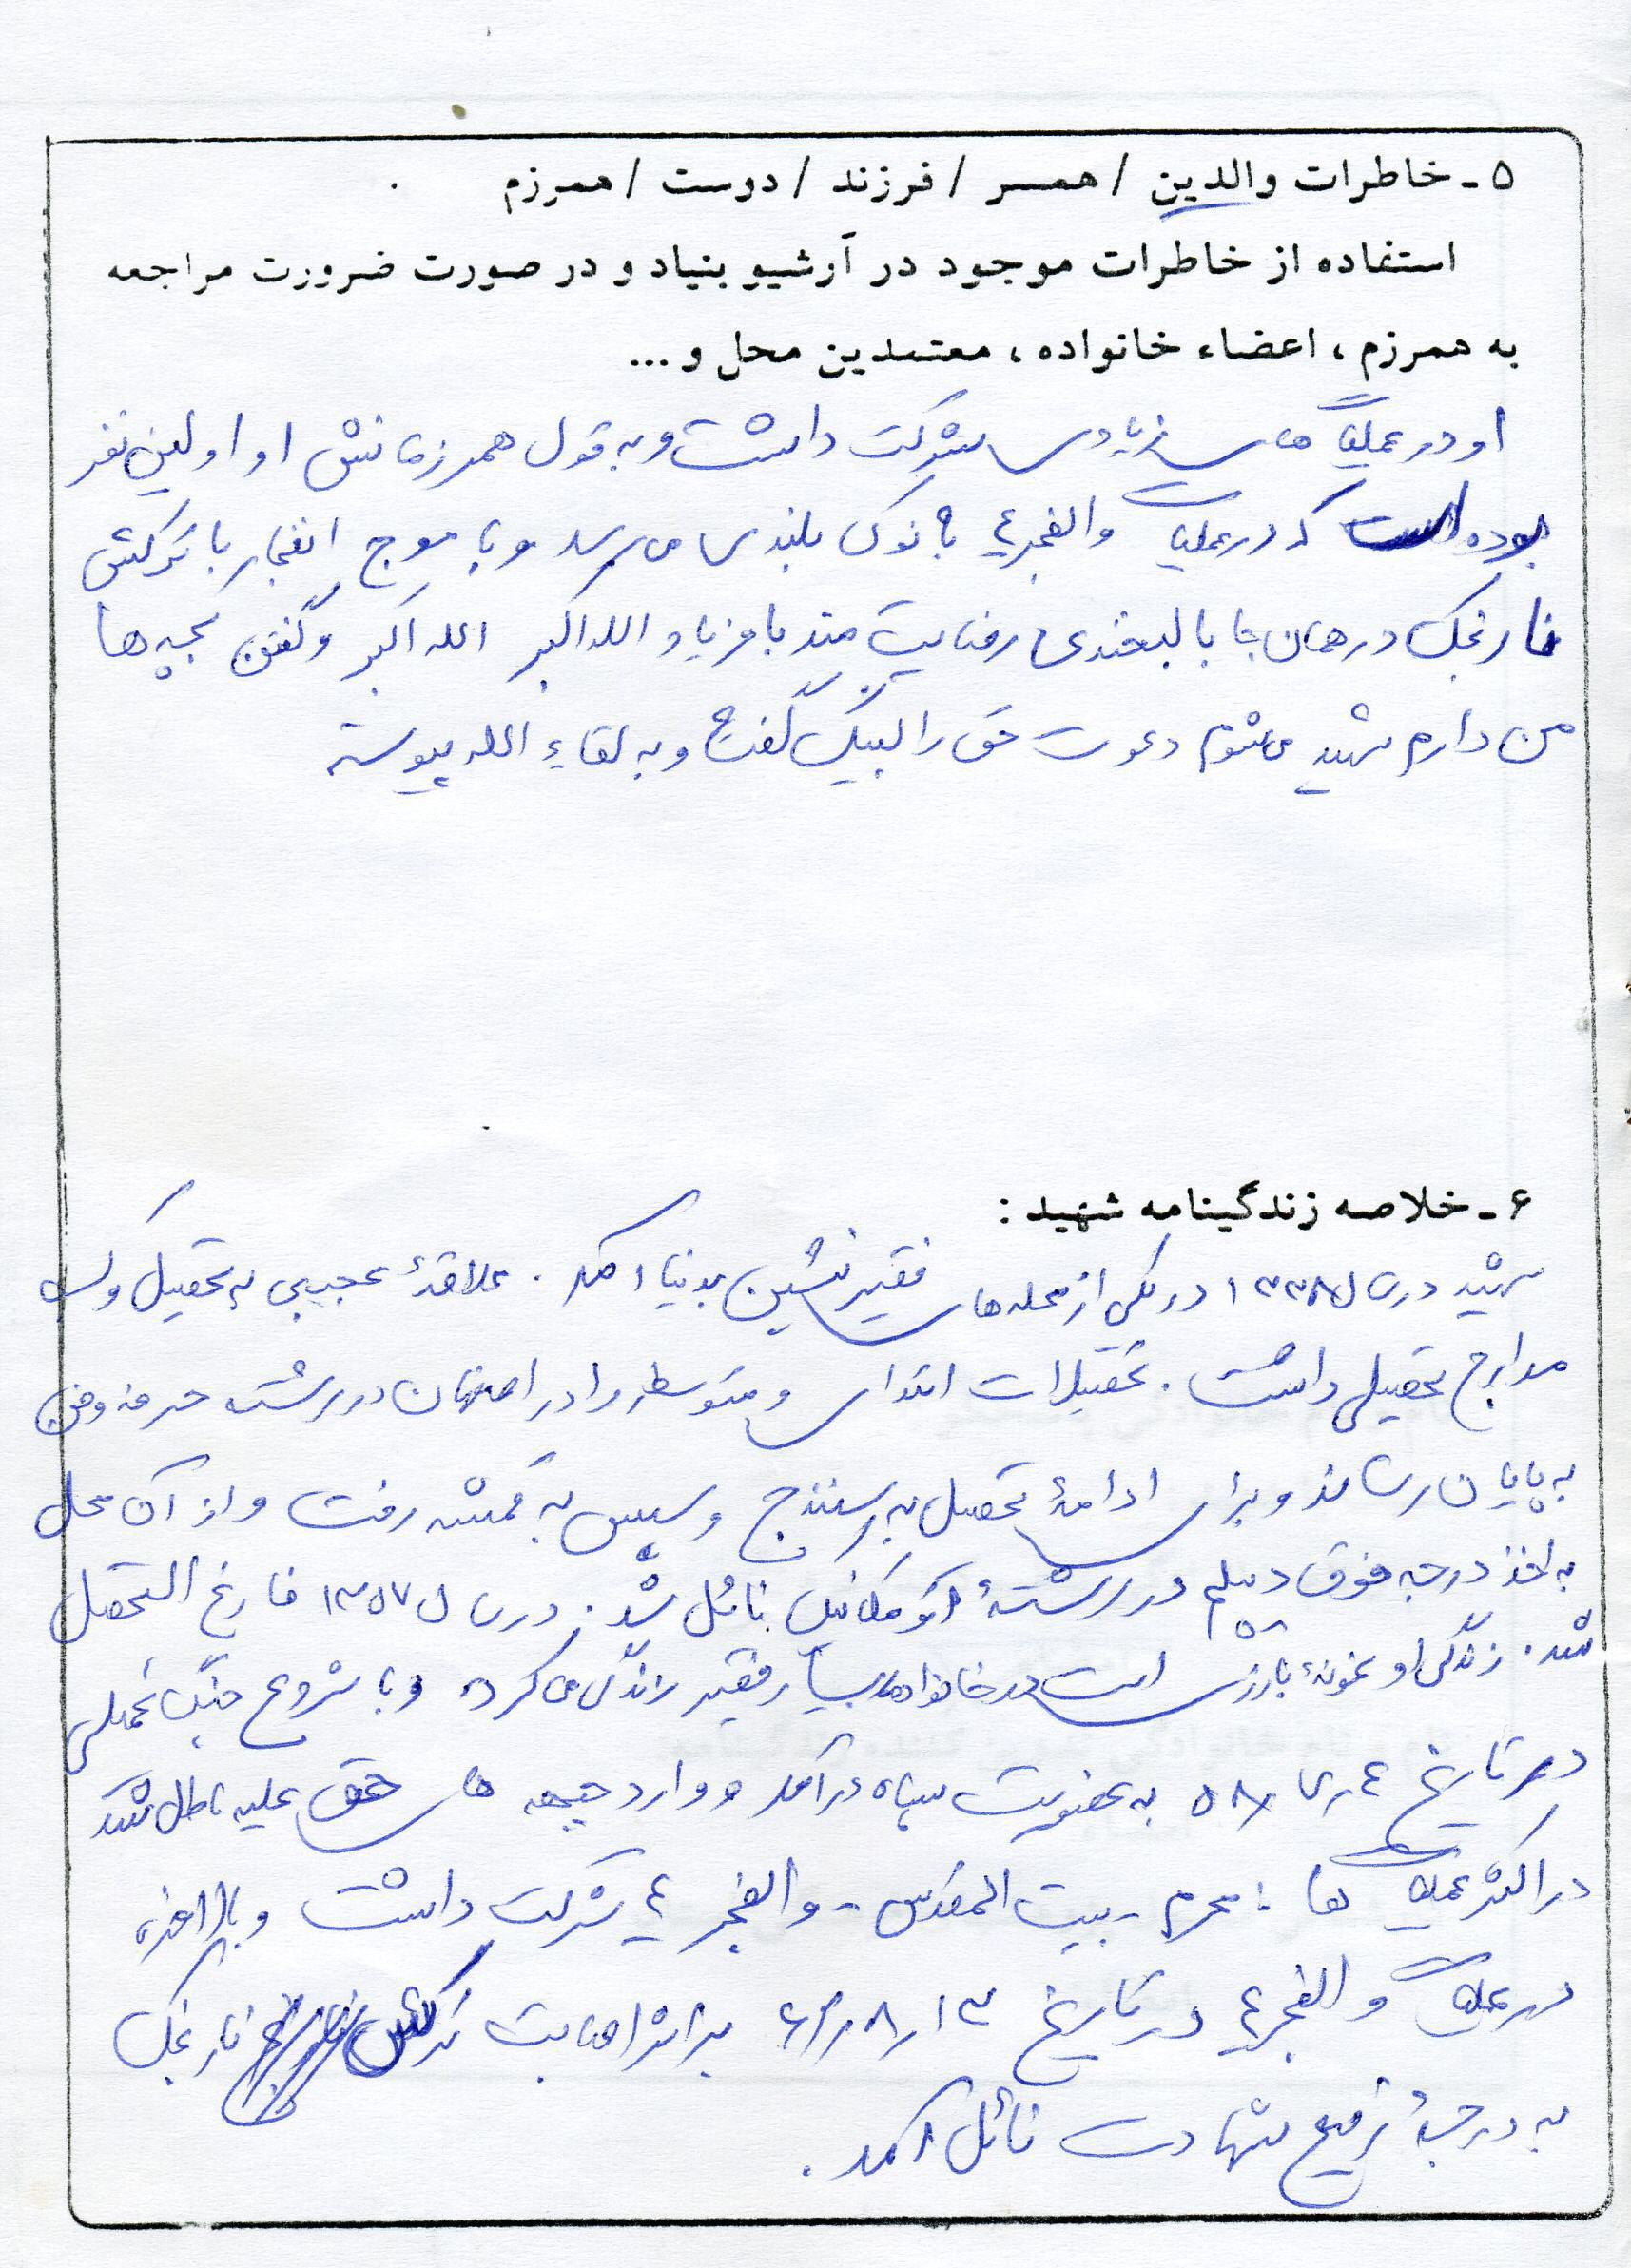 ۵ ـ خاطرات والدین / همسر / فرزند / دوست / همرزم
استفاده از خاطرات موجود در آرشیو بنیاد و در صورت ضرورت مراجعه
به همرزم ، اعضاء خانواده ، معتمدین محل و ...
او در عملیات های زیادی شرکت داشت و به قول همرزمانش او اولین نفر
بوده است که در عملیات والفجر ۴ به نوک بلندی می رسد و با موج انفجار با ترکش
نارنجک در همان جا با لبخندی رضایت مند با فریاد الله اکبر الله اکبر و گفتن بچه ها
من دارم شهید می شوم دعوت حق را لبیک گفت و به لقاء الله پیوست
۶ ـ خلاصه زندگینامه شهید :
شهید در سال ۱۳۳۸ در یکی از محله های فقیر نشین بدنیا آمد . علاقهٔ عجیبی به تحصیل و کسب
مدارج تحصیلی داشت . تحصیلات ابتدایی و متوسطه را در اصفهان در رشته حرفه و فن
به پایان رساند و برای ادامهٔ تحصیل به سنندج و سپس به قمشه رفت و از آن محل
به اخذ درجه فوق دیپلم در رشتهٔ اتومکانیک نائل شد . در سال ۱۳۵۷ فارغ التحصیل
شد . زندگی او نمونهٔ بارزی است در خانواده بسیار فقیر زندگی می کرد و با شروع جنگ تحمیلی
در تاریخ به عضویت سپاه درآمد و وارد جبهه های حق علیه باطل شد
در اکثر عملیات ها : محرم - بیت المقدس - والفجر ۴ شرکت داشت و بالاخره
در عملیات والفجر ۴ در تاریخ بر اثر اصابت ترکش نارنجک
به درجهٔ رفیع شهادت نائل آمد .